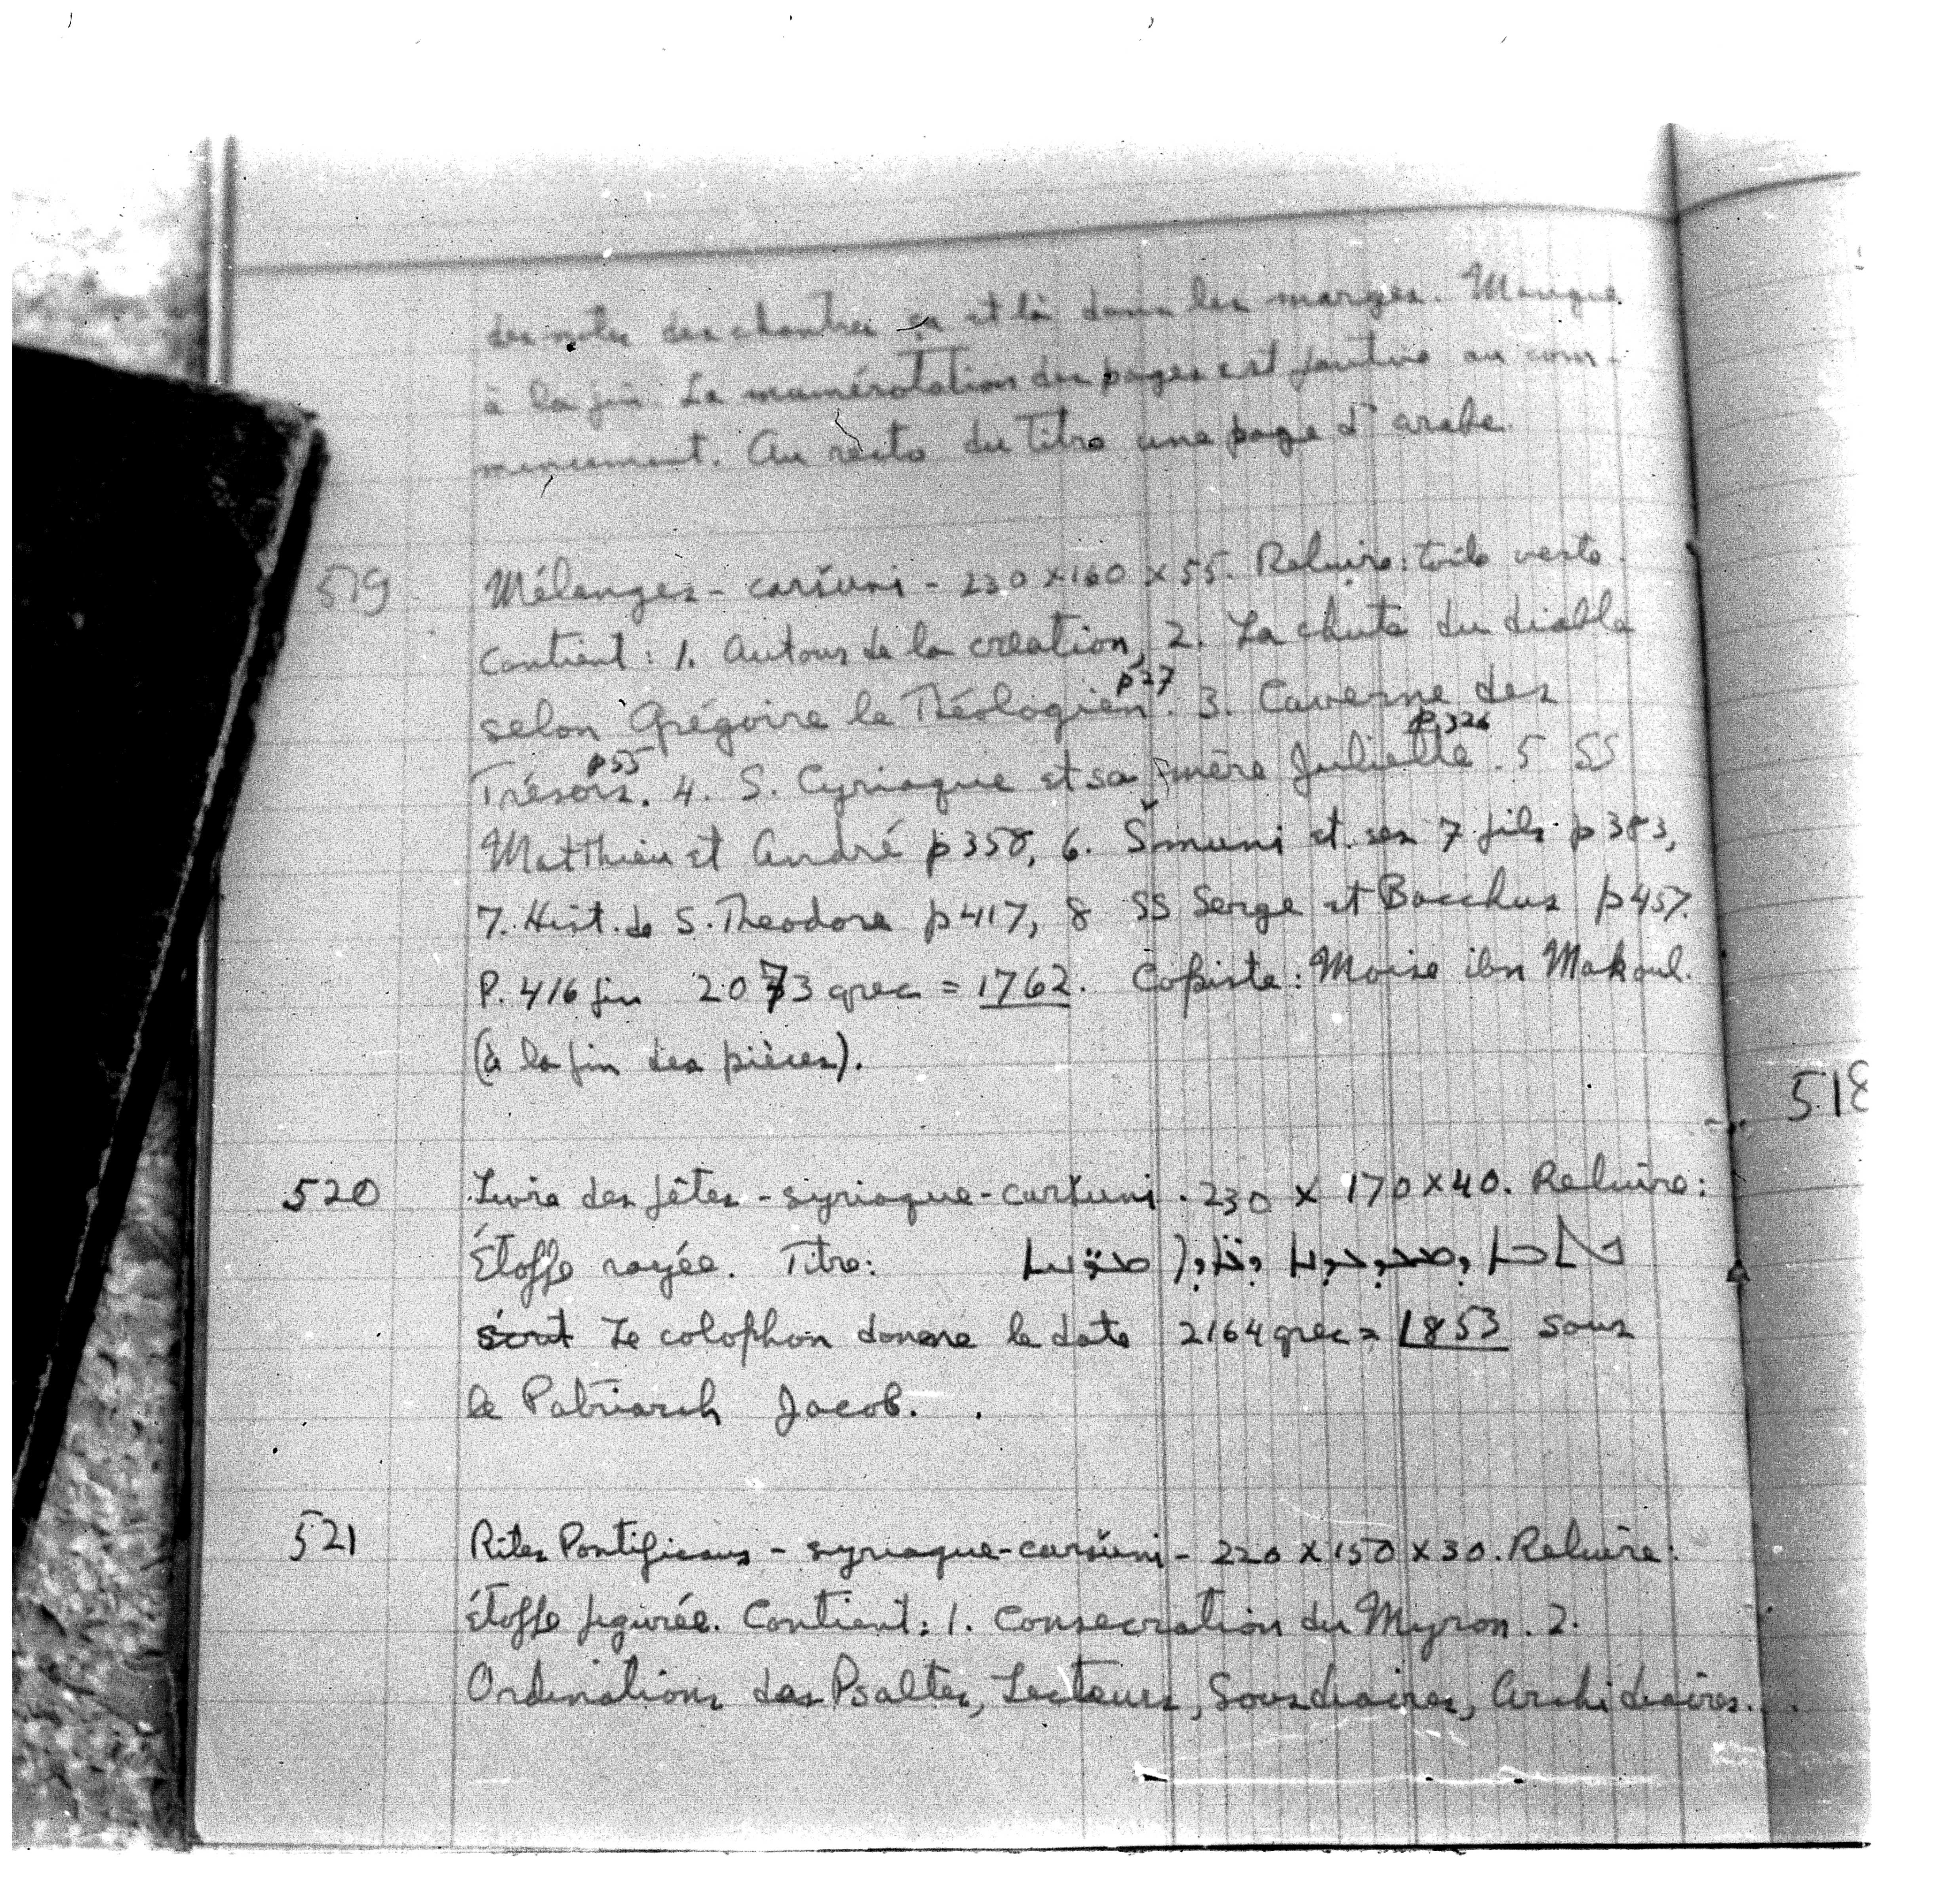 des notes des chantres ça et là dans les marges. Manque
à la fin. La numérotation des pages est fautive au com-
mencement. Au recto du titre une page d'arabe.
519 Mélanges - caršuni - 230 x 160 x 55. Reliure: toile verte.
Contient: 1. Autour de la création, 2. La chute du diable
selon Grégoire le Théologien p37. 3. Caverne des
Trésors p55. 4. S. Cyriaque et sa mère Juliette p326. 5 SS
Matthieu et André p358, 6. Šmuni et ses 7 fils p383,
7. Hist. de S. Theodore p417, 8 SS Serge et Bacchus p457.
P. 416 fin 2073 grec = 1762. Copiste: Moise ibn Makoul.
(à la fin des pièces).
518
520 Livre des fêtes - syriaque-caršuni. 230 x 170 x 40. Reliure:
Étoffe rayée. Titre: ܟܬܒܐ ܕܡܥܕܥܕܢܐ
Le colophon donne la date 2164 grec = 1853 sous
le Patriarch Jacob.
521 Rites Pontificaux - syriaque-caršuni - 220 x 150 x 30. Reliure:
Étoffe figurée. Contient: 1. Consecration du Myron. 2.
Ordinations des Psaltes, Lecteurs, Sousdiacres, Archidiacres..